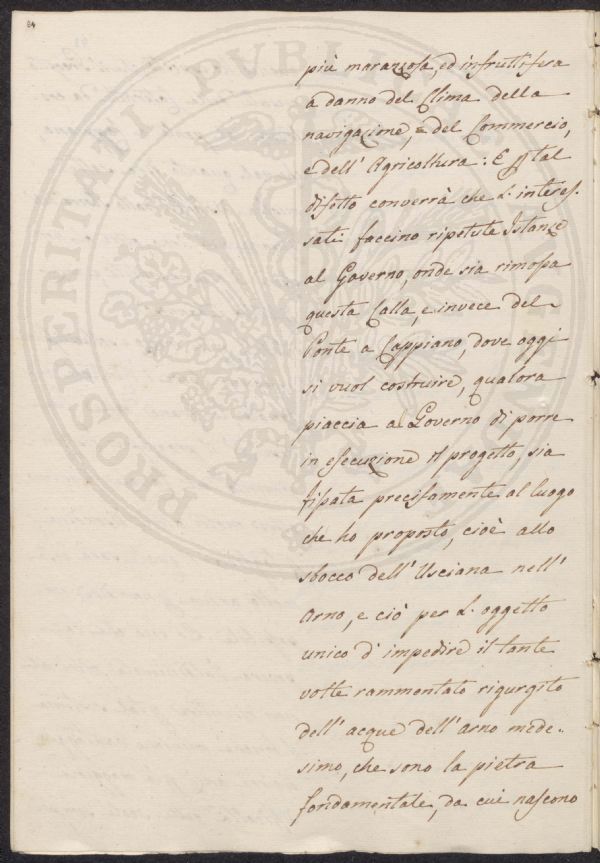 84
PROSPERITATI PUBLI AUGENDAE
più marazzosa, ed infruttifera
a danno del Clima della
navigazione, e del Commercio,
e dell' Agricoltura: E p tal
difetto converrà che l' interes-
sati faccino ripetute Istanze
al Governo, onde sia rimossa
questa Calla, e invece del
Ponte a Cappiano, dove oggi
si vuol costruire, qualora
piaccia al Governo di porre
in esecuzione il progetto, sia
fissata precisamente al luogo
che ho proposto, cioè allo
sbocco dell' Usciana nell'
Arno, e ciò per l' oggetto
unico d' impedire il tante
volte rammentato rigurgito
dell' acque dell' Arno mede-
simo, che sono la pietra
fondamentale, da cui nascono